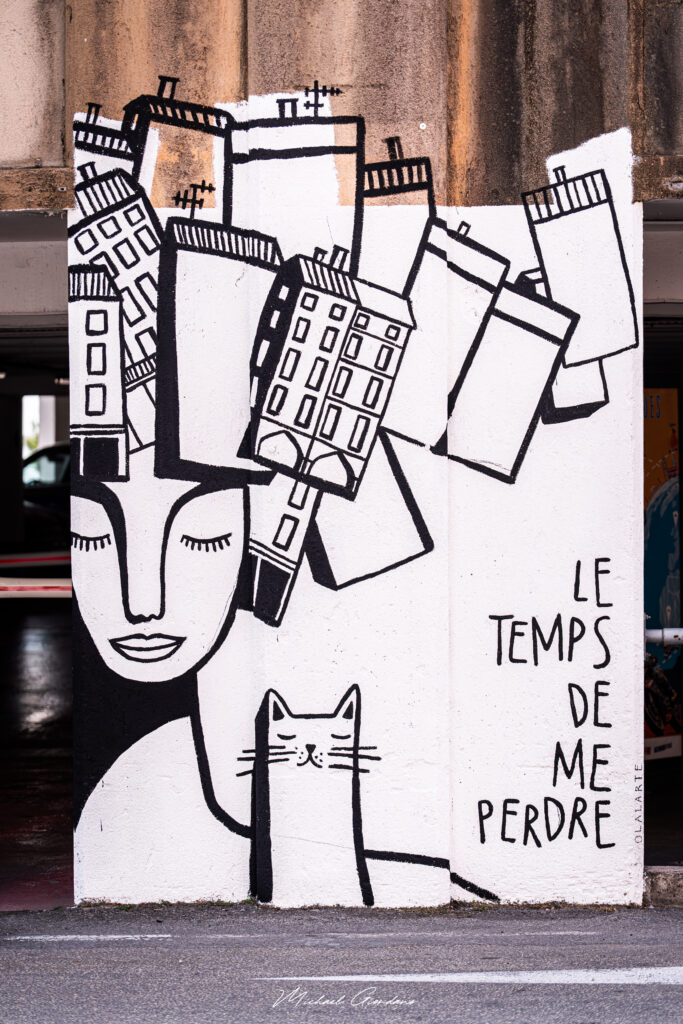 LE
TEMPS
DE
ME
PERDRE
OLALARTE
Michael Giordano